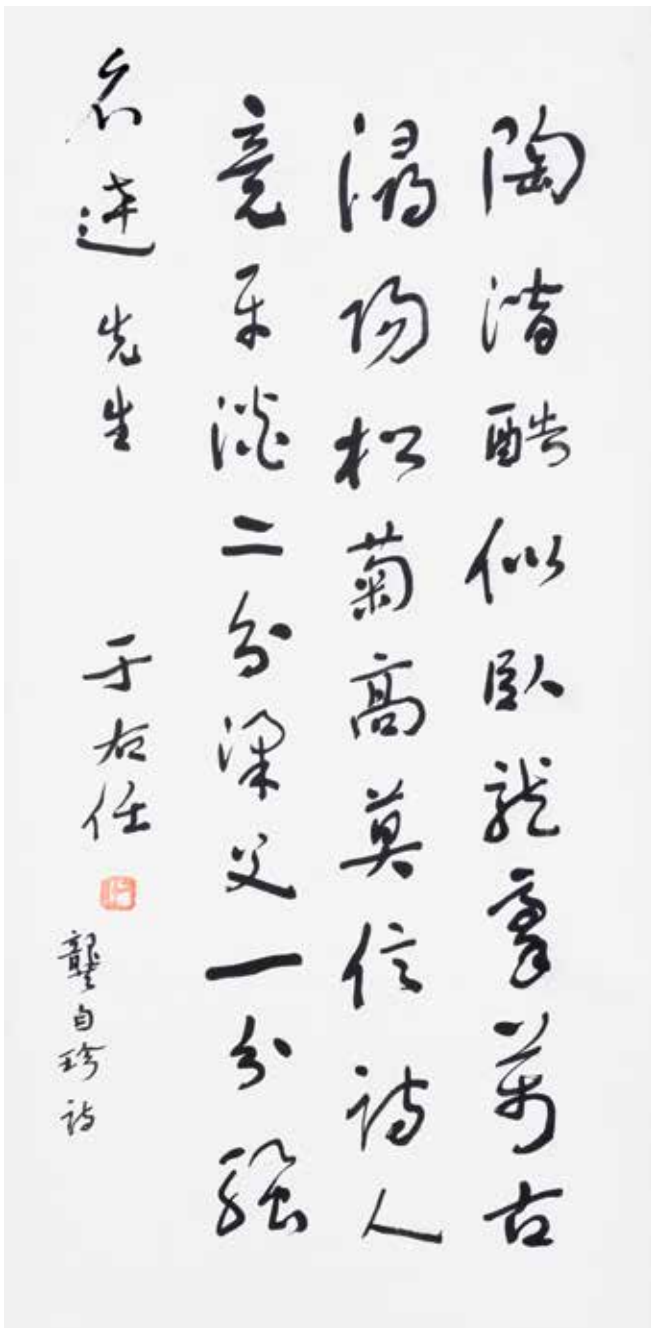 陶潛酷似臥龍豪萬古
潯陽松菊高莫信詩人
竟平淡二分梁父一分騷
先生 于右任
龔自珍詩